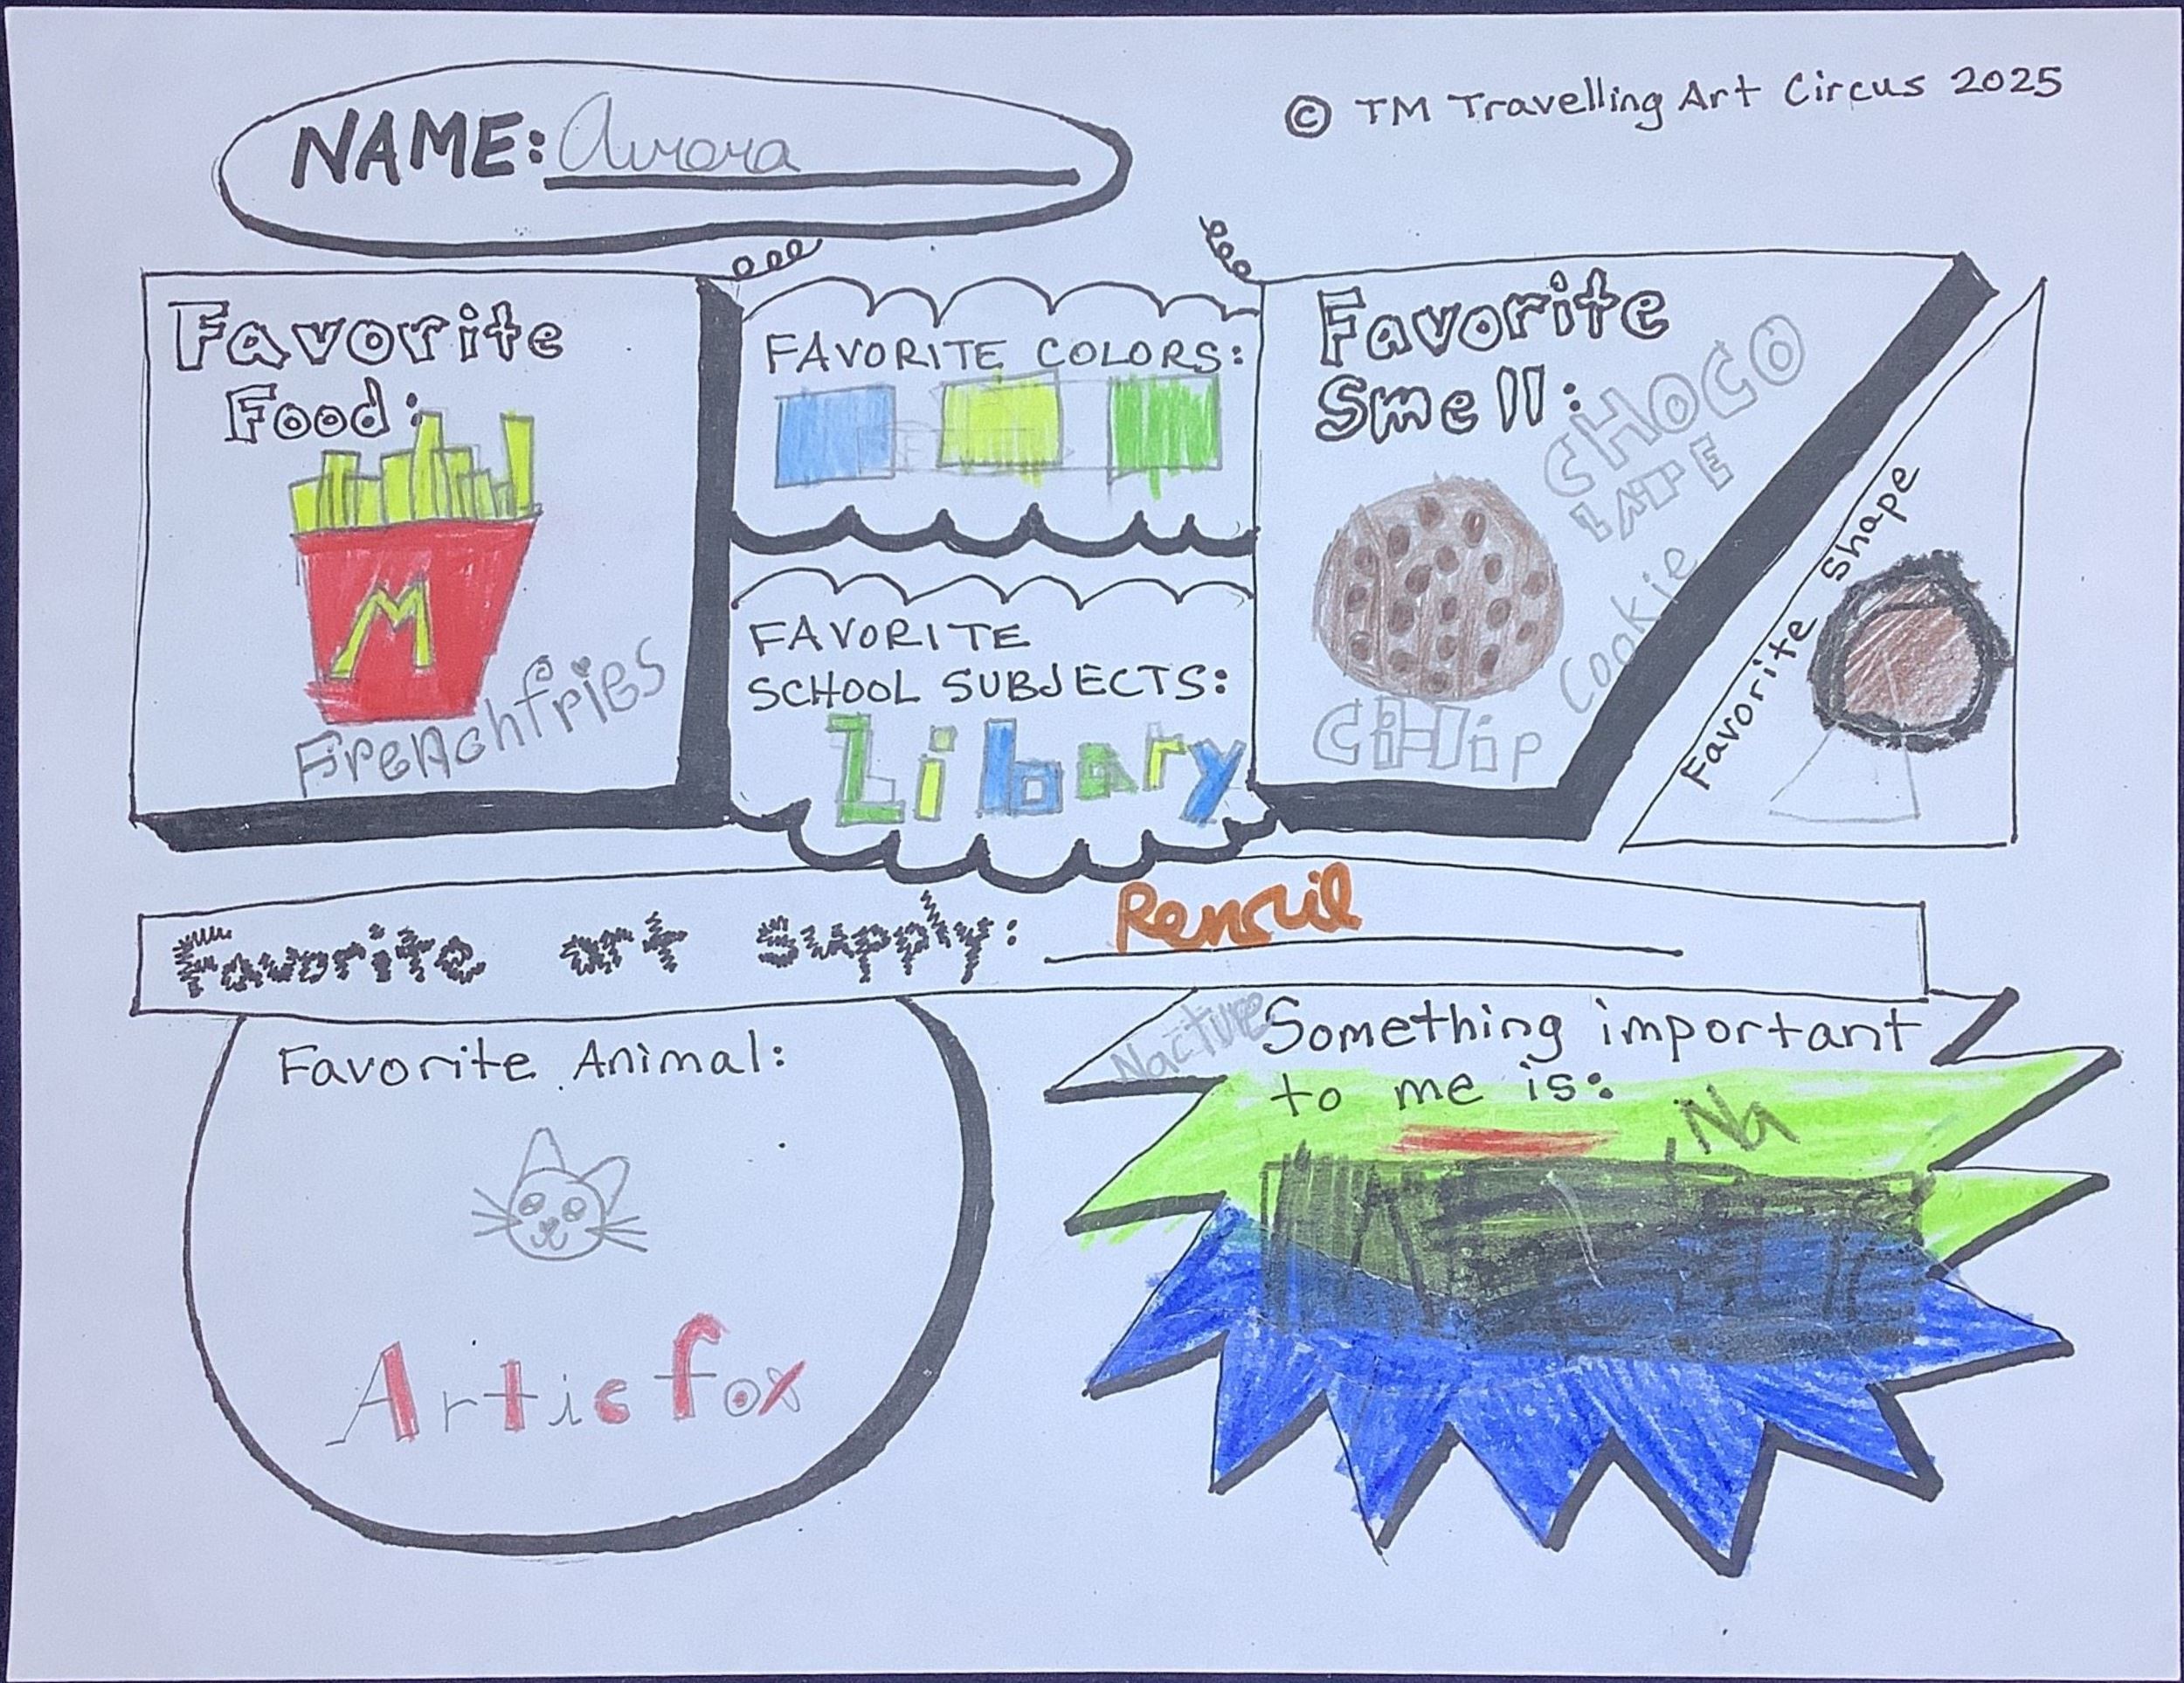 © TM Travelling Art Circus 2025
NAME: Aurora
Favorite
Food:
M
Frenchfries
FAVORITE COLORS:
FAVORITE
SCHOOL SUBJECTS:
Libary
Favorite
Smell:
CHOCO
LATE
CHip
Cookie
Favorite Shape
Favorite art supply: Pencil
Favorite Animal:
Artic fox
Something important
to me is:
Nacture
Na